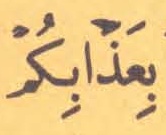 بِعَذَابِكُمْ